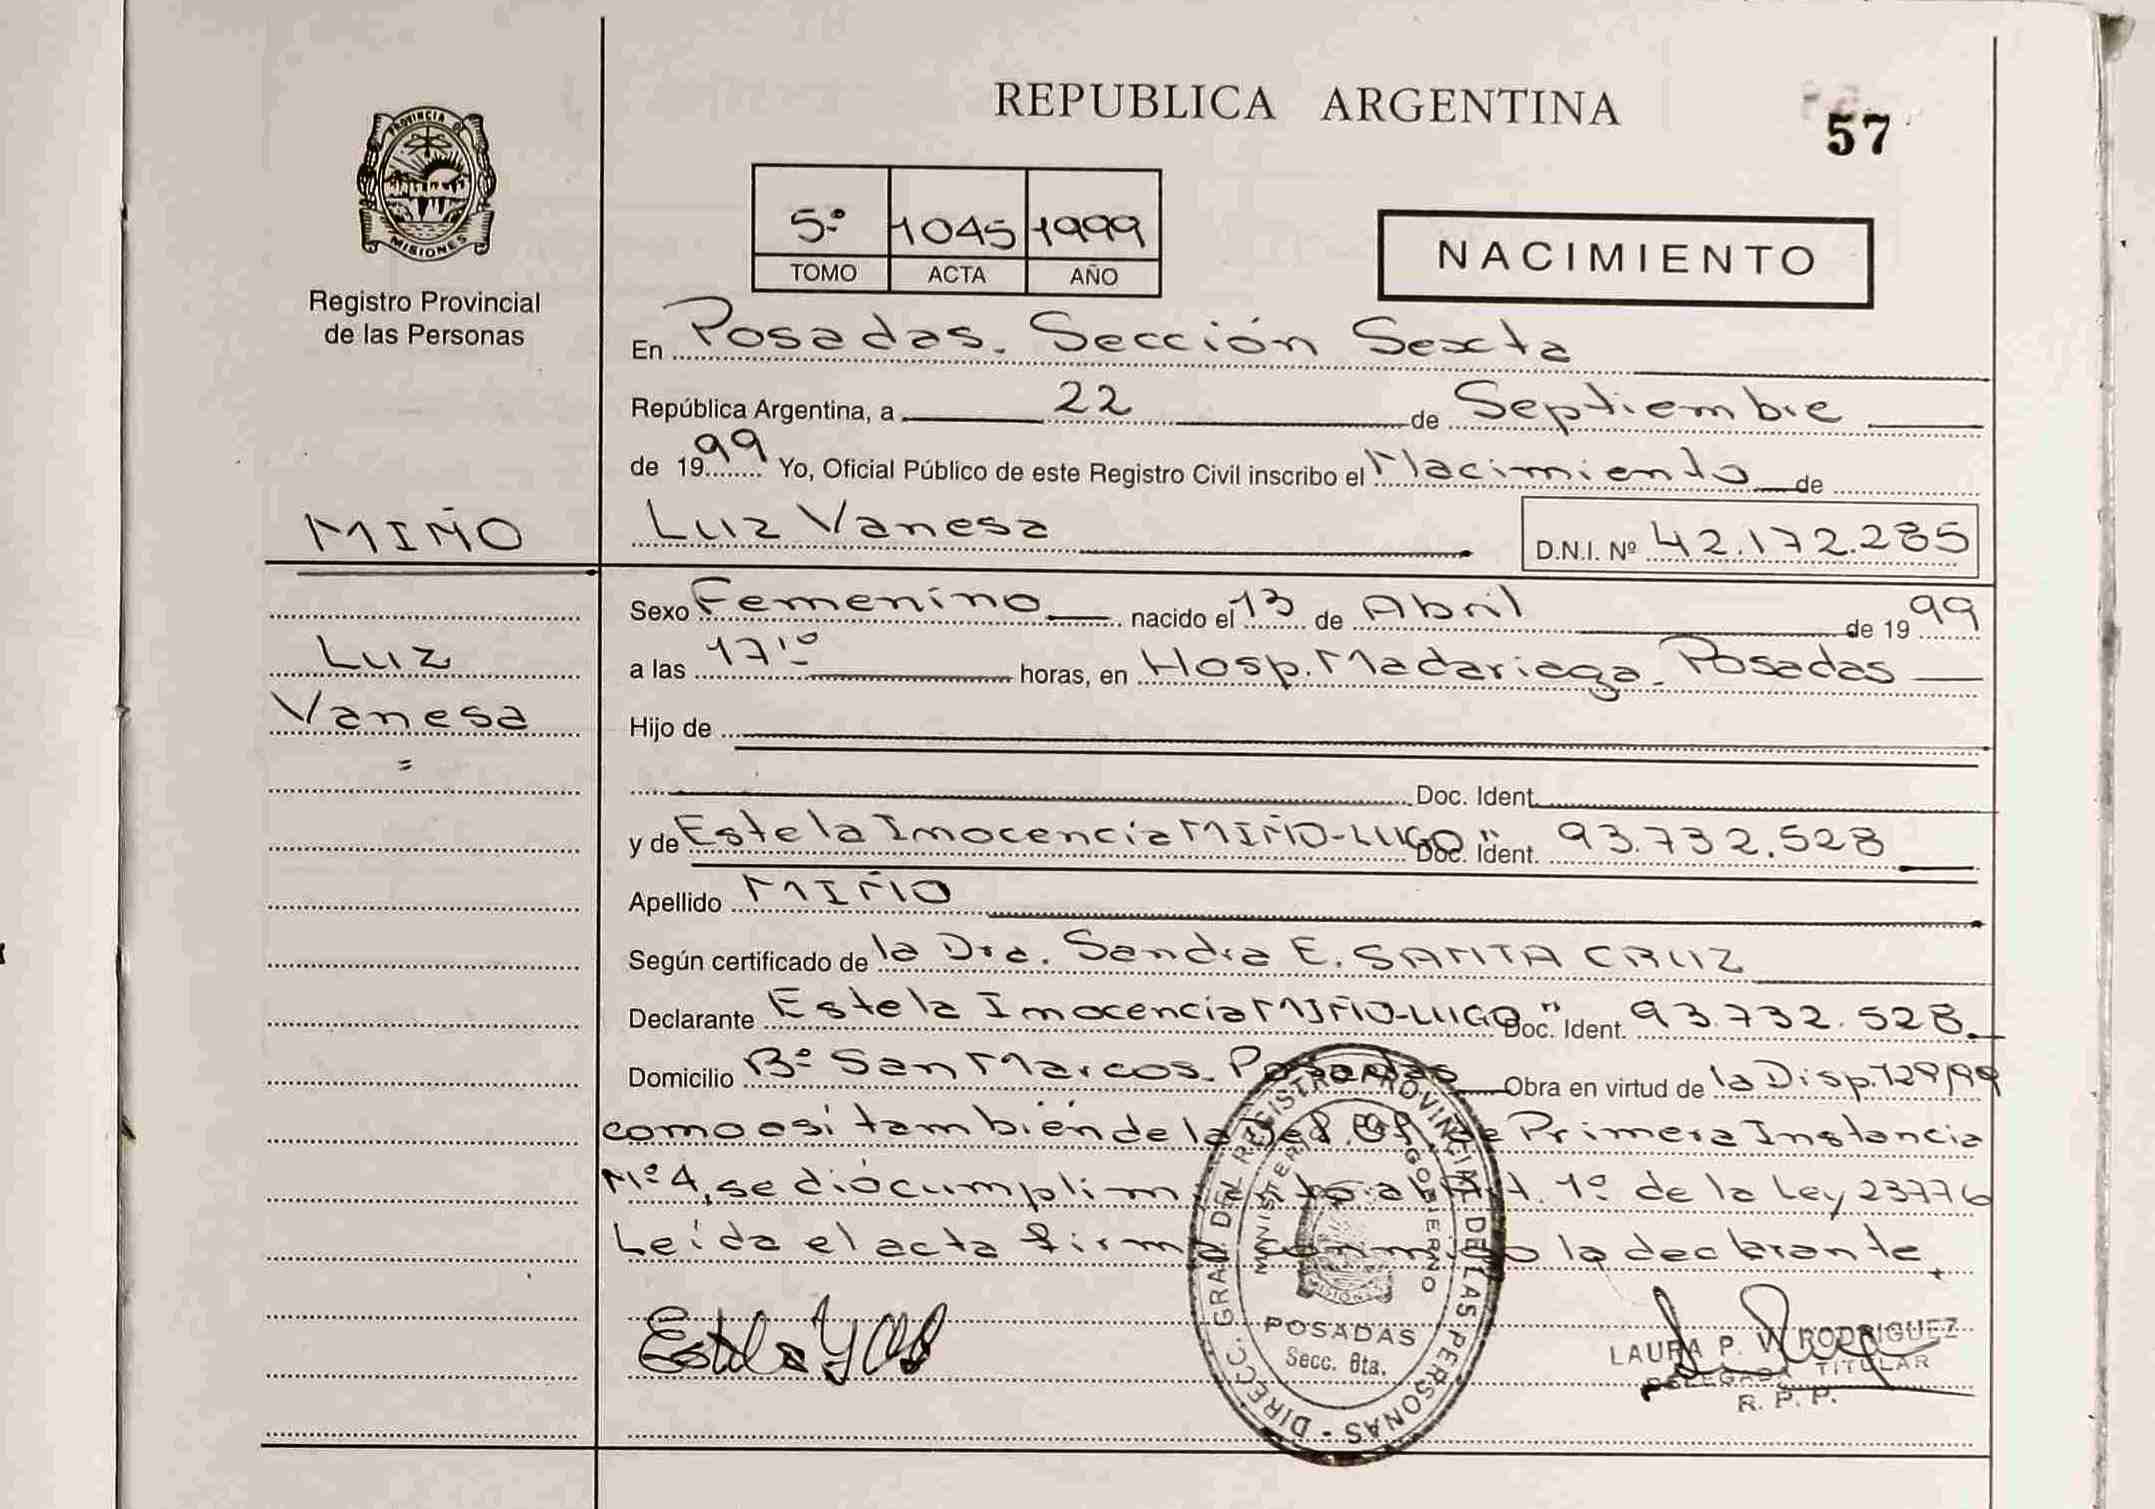 REPUBLICA ARGENTINA
57
PROVINCIA DE
MISIONES
Registro Provincial
de las Personas
5º 1045 1999
TOMO ACTA AÑO
NACIMIENTO
En Posadas. Sección Sexta
República Argentina, a 22 de Septiembre
de 1999 Yo, Oficial Público de este Registro Civil inscribo el Nacimiento de
MIÑO
Luz Vanesa D.N.I. Nº 42.172.285
Sexo Femenino nacido el 13 de Abril de 1999
Luz
a las 17'º horas, en Hosp. Madariaga. Posadas
Vanesa
Hijo de
Doc. Ident.
y de Estela Inocencia MIÑO-LUGO Doc. Ident. " 93.732.528
Apellido MIÑO
Según certificado de la Dra. Sandra E. SANTA CRUZ
Declarante Estela Inocencia MIÑO-LUGO Doc. Ident. " 93.732.528.
Domicilio Bº San Marcos. Posadas Obra en virtud de la Disp. 129/99
como así también de la Def. Of. de Primera Instancia
Nº 4, se dió cumplimiento al Art. 1º de la Ley 23776
Leída el acta firma conmigo la declarante.
DIRECC. GRAL DEL REGISTRO PROVINCIAL DE LAS PERSONAS -
MINISTERIO GOBIERNO
MISIONES
POSADAS
Secc. 6ta.
Estela
LAURA P. W. RODRIGUEZ
DELEGADA TITULAR
R. P. P.